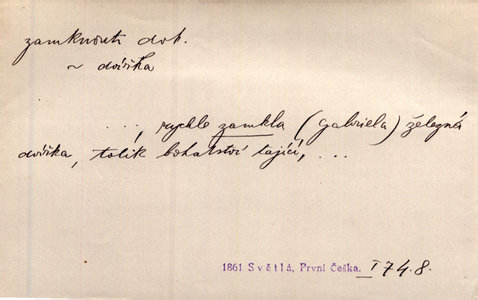 zamknouti dok.
~ dvířka
..., rychle zamkla (Gabriela) železná
dvířka, tolik bohatství tající, ...
1861 Světlá, První Češka. I 74.8.